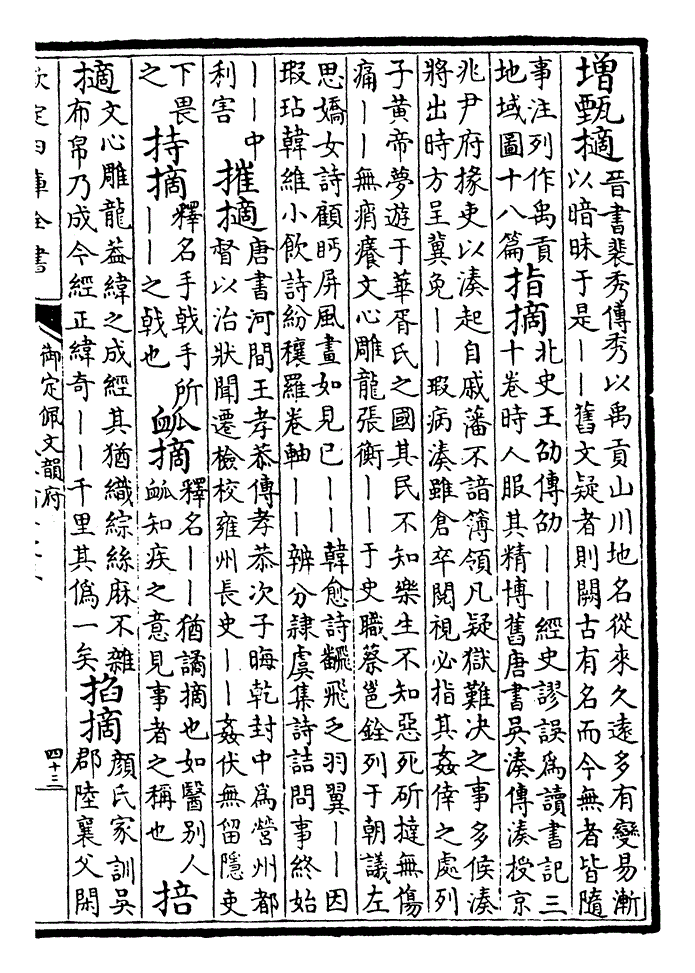 增甄擿晉書裴秀傳秀以禹貢山川地名從來久遠多有變易漸
以暗昧于是——舊文疑者則闕古有名而今無者皆隨
事注列作禹貢
地域圖十八篇
指摘北史王劭傳劭——經史謬誤為讀書記三
十卷時人服其精博舊唐書吳湊傳湊授京
兆尹府掾吏以湊起自戚藩不諳簿領凡疑獄難决之事多候湊
將出時方呈冀免——瑕病湊雖倉卒閱視必指其姦倖之處列
子黃帝夢遊于華胥氏之國其民不知樂生不知惡死斫撻無傷
痛——無痟癢文心雕龍張衡——于史職蔡邕銓列于朝議左
思嬌女詩顧眄屏風畫如見已——韓愈詩翻飛乏羽翼——因
瑕玷韓維小飲詩紛穰羅卷軸——辨分隸虞集詩詰問事終始
——中
利害
摧擿唐書河間王孝恭傳孝恭次子晦乾封中為營州都
督以治狀聞遷檢校雍州長史——姦伏無留隱吏
下畏
之
持摘釋名手戟手所
——之戟也
䘐摘釋名——猶譎摘也如醫別人
䘐知疾之意見事者之稱也
掊
擿文心雕龍蓋緯之成經其猶織綜絲麻不雜
布帛乃成今經正緯奇——千里其偽一矣
掐摘顏氏家訓吳
郡陸襄父閑
欽定四庫全書
御定佩文韻府
四十三